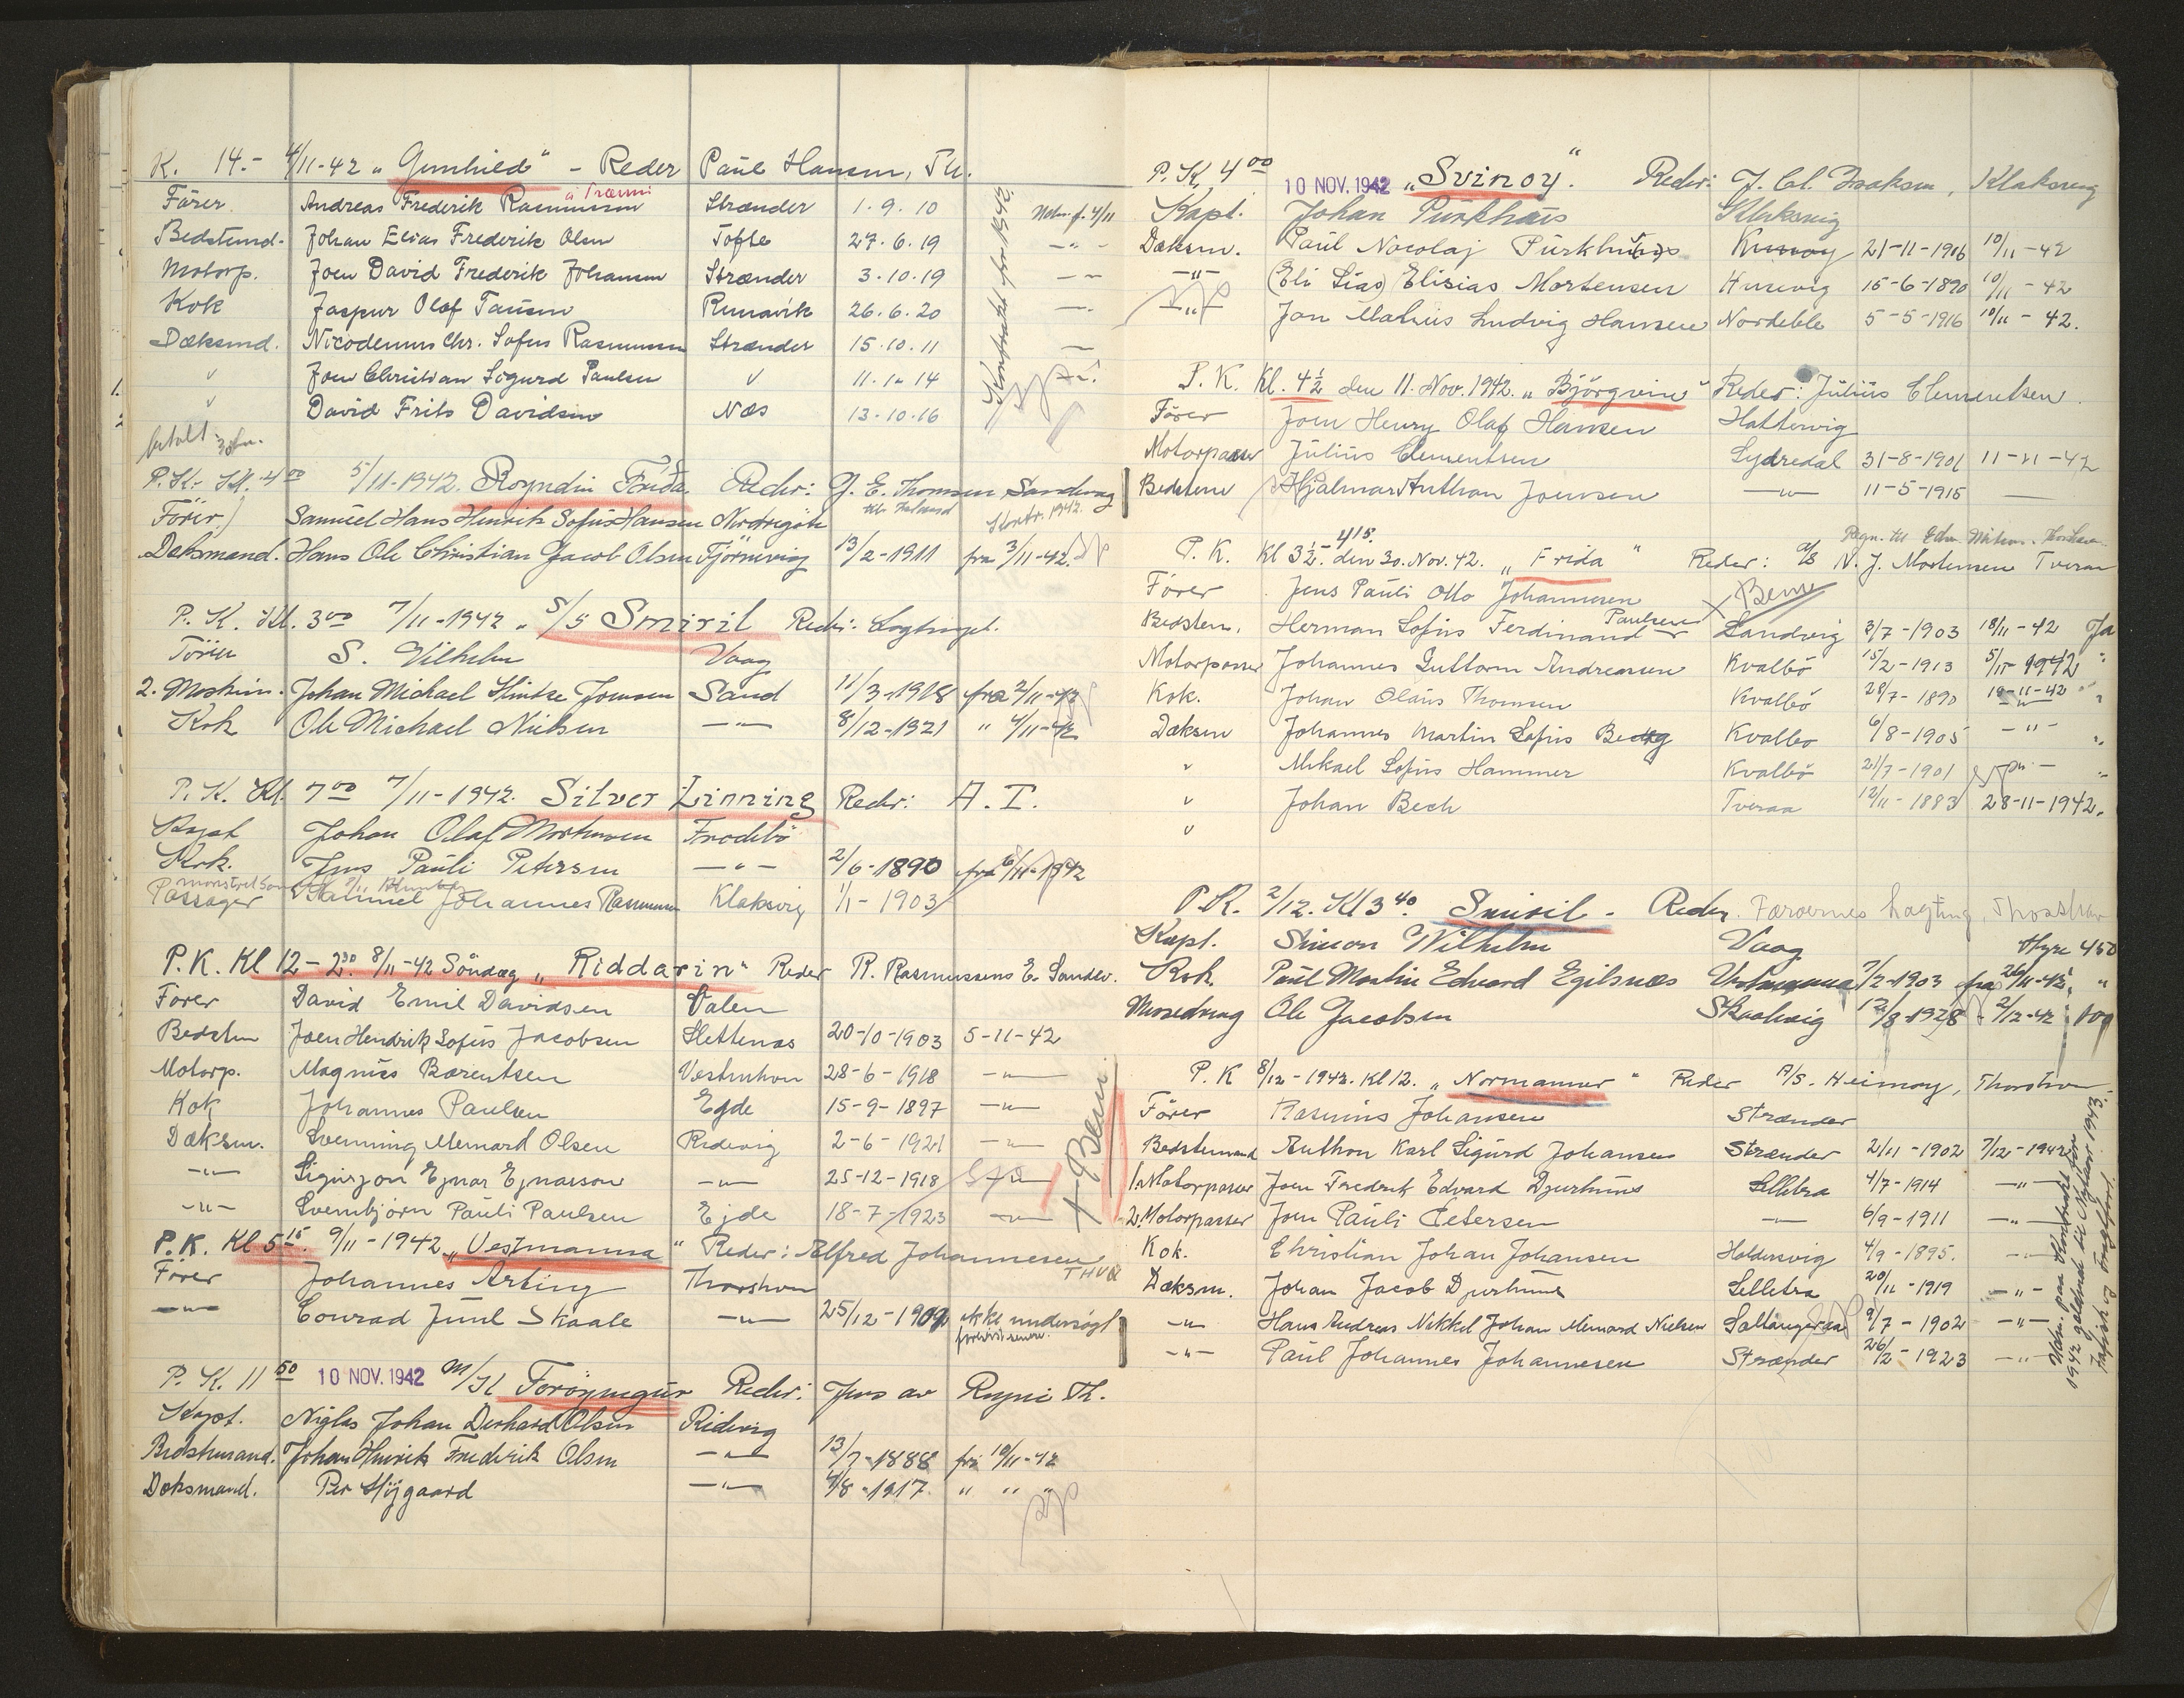 K. 14.- 4/11-42 „Gunhild" - Reder Paul Hansen, Th.
á Trænni
Förer Andreas Frederik Rasmussen Strænder 1.9.10 4/11
Bedstmd. Johan Elias Frederik Olsen Tofte 27.6.19 -"-
Motorp. Joen David Frederik Johansen Strænder 3.10.19
Kok Jaspur Olaf Tausen Runavik 26.6.20
Dæksmd. Nicodemus Chr. Sofus Rasmussen Strænder 15.10.11
" Joen Christian Sigurd Paulsen " 11.1.14
" David Frits Davidsen Næs 13.10.16
Kontrakt for 1942.
betalt
P.K. Kl. 4 00 5/11-1942. Royndin Frida Reder: J. E. Thomsen Sandvaag
Förer Samuel Hans Hinrik Sofus Hansen Nordregöte Kontr. 1942.
Dæksmand. Hans Ole Christian Jacob Olsen Tjörnevig 13/2-1911 fra 3/11-42.
P. K. Kl. 3 00 7/11-1942 „S/S Smiril Reder: Lagtinget.
Förer S. Vilhelm Vaag
2. Maskin. Johan Michael Hintze Joensen Sand 11/3-1918 fra 2/11-42
Kok Ole Michael Nielsen -"- 8/12-1921 " 4/11-42
P. K. Kl. 7 00 7/11-1942. Silver Linning Reder: A. I.
Kapt Johan Olaf Mortensen Frodebö
Kok. Jens Pauli Petersen -"- 2/6-1890 fra 6/11-1942
mönstret som
Passager Samuel Johannes Rasmussen Klaksvig 1/1-1903
P.K. Kl 12-2 30 8/11-42 Söndag „Riddarin" Reder R. Rasmussens E. Sandv.
Förer David Emil Davidsen Salen
Bedstm Joen Hendrik Sofus Jacobsen Slettenæs 20-10-1903 5-11-42
Motorp. Magnus Bærentsen Vestmhvn 28-6-1918 -"-
Kok Johannes Paulsen Egde 15-9-1897 -"-
Dæksm. Svenning Meinard Olsen Ridevig 2-6-1921 -"-
-"- Sigurjon Ejnar Ejnarsson -"- 25-12-1918
-"- Svenbjörn Pauli Paulsen Ejde 18-7-1923 -"-
+ Bem
P.K. Kl 5 15. 9/11-1942 „Vestmanna" Reder: Alfred Johannesen
THVN
Förer Johannes Arting Thorshvn
-"- Conrad Juul Skaale -"- 25/12-1909 ikke undersögt
P. K. 11 50 10 NOV. 1942 M/K Foröyingur Reder: Jens av Reyni Th.
Kapt. Niglas Johan Derhard Olsen Ridevig
Bedstmand. Johan Hinrik Frederik Olsen -"- 13/7-1888 fra 10/11-42
Dæksmand. Per Höjgaard -"- 4/8-1917. " " "
P. K. 4 00 10 NOV. 1942 „Svinoy". Reder: J. Cl. Isaksen, Klaksvig
Kapt. Johan Purkhus Klaksvig
Dæksm. Paul Nocolaj Purkhus Kunoy 21-11-1916 10/11-42
-"- (Eli Sias) Elisias Mortensen Husevig 15-6-1890 10/11-42
-"- Jon Matius Ludvig Hansen Nordeble 5-5-1916 10/11-42.
P. K. Kl. 4 1/2 den 11. Nov. 1942. „Björgvin" Reder: Julius Clementsen.
Förer Joen Henry Olaf Hansen Hattervig
Motorpasser Julius Clementsen Sydredal 31-8-1901 11-11-42
Bedstem Hjalmar Anthon Joensen -"- 11-5-1915
P. K. Kl 3 1/2 - 4 15. den 30. Nov. 42. „Frida" Reder: A/S N. J. Mortensen Tveraa
Förer Jens Pauli Otto Johannesen × Bem
Bedstem. Herman Sofus Ferdinand Paulsen Sandvig 3/7-1903 18/11-42 Ja
Motorpasser Johannes Guttorm Andreasen Kvalbö 15/2-1913 5/11-1942 "
Kok. Johan Olaus Thomsen Kvalbö 28/7-1890 18-11-42 "
Dæksm Johannes Martin Sofus Berg Kvalbö 6/8-1905 -"- "
" Mikael Sofus Hammer Kvalbö 21/7-1901 "
" Johan Bech Tveraa 12/11-1883 28-11-1942.
"
P.K. 2/12. Kl 3 40. Smiril - Reder. Færoernes Lagting, Thorshavn
Kapt. Simon Wilhelm Vaag Hyre 450
Kok. Paul Martin Edvard Egilsnæs Vestmanna 7/2-1903 fra 26/11-42. "
Messedreng Ole Jacobsen Skaalevig 12/8-1928 - 2/12-42 100
P. K 8/12-1942. Kl 12. „Normanner" Reder A/S. Heimoy, Thorshvn.
Förer Rasmus Johansen Strænder
Bedstemand Anthon Karl Sigurd Johansen Strænder 2/11-1902 7/12-1942
1. Motorpasser Joen Fredrik Edvard Djurhuus Selletra 4/7-1914 -"-
2. Motorpasser Joen Pauli Petersen -"- 6/9-1911 -"-
Kok. Christian Johan Johansen Haldersvig 4/9-1895. -"-
Dæksm. Johan Jacob Djurhuus Selletra 20/11-1919 -"-
-"- Hans Andreas Nikkel Johan Meinard Nielsen Saltangeraa 9/7-1902 -"-
-"- Paul Johannes Johannesen Strænder 26/2-1923 -"-
1942 gældende til Nytaar 1943.